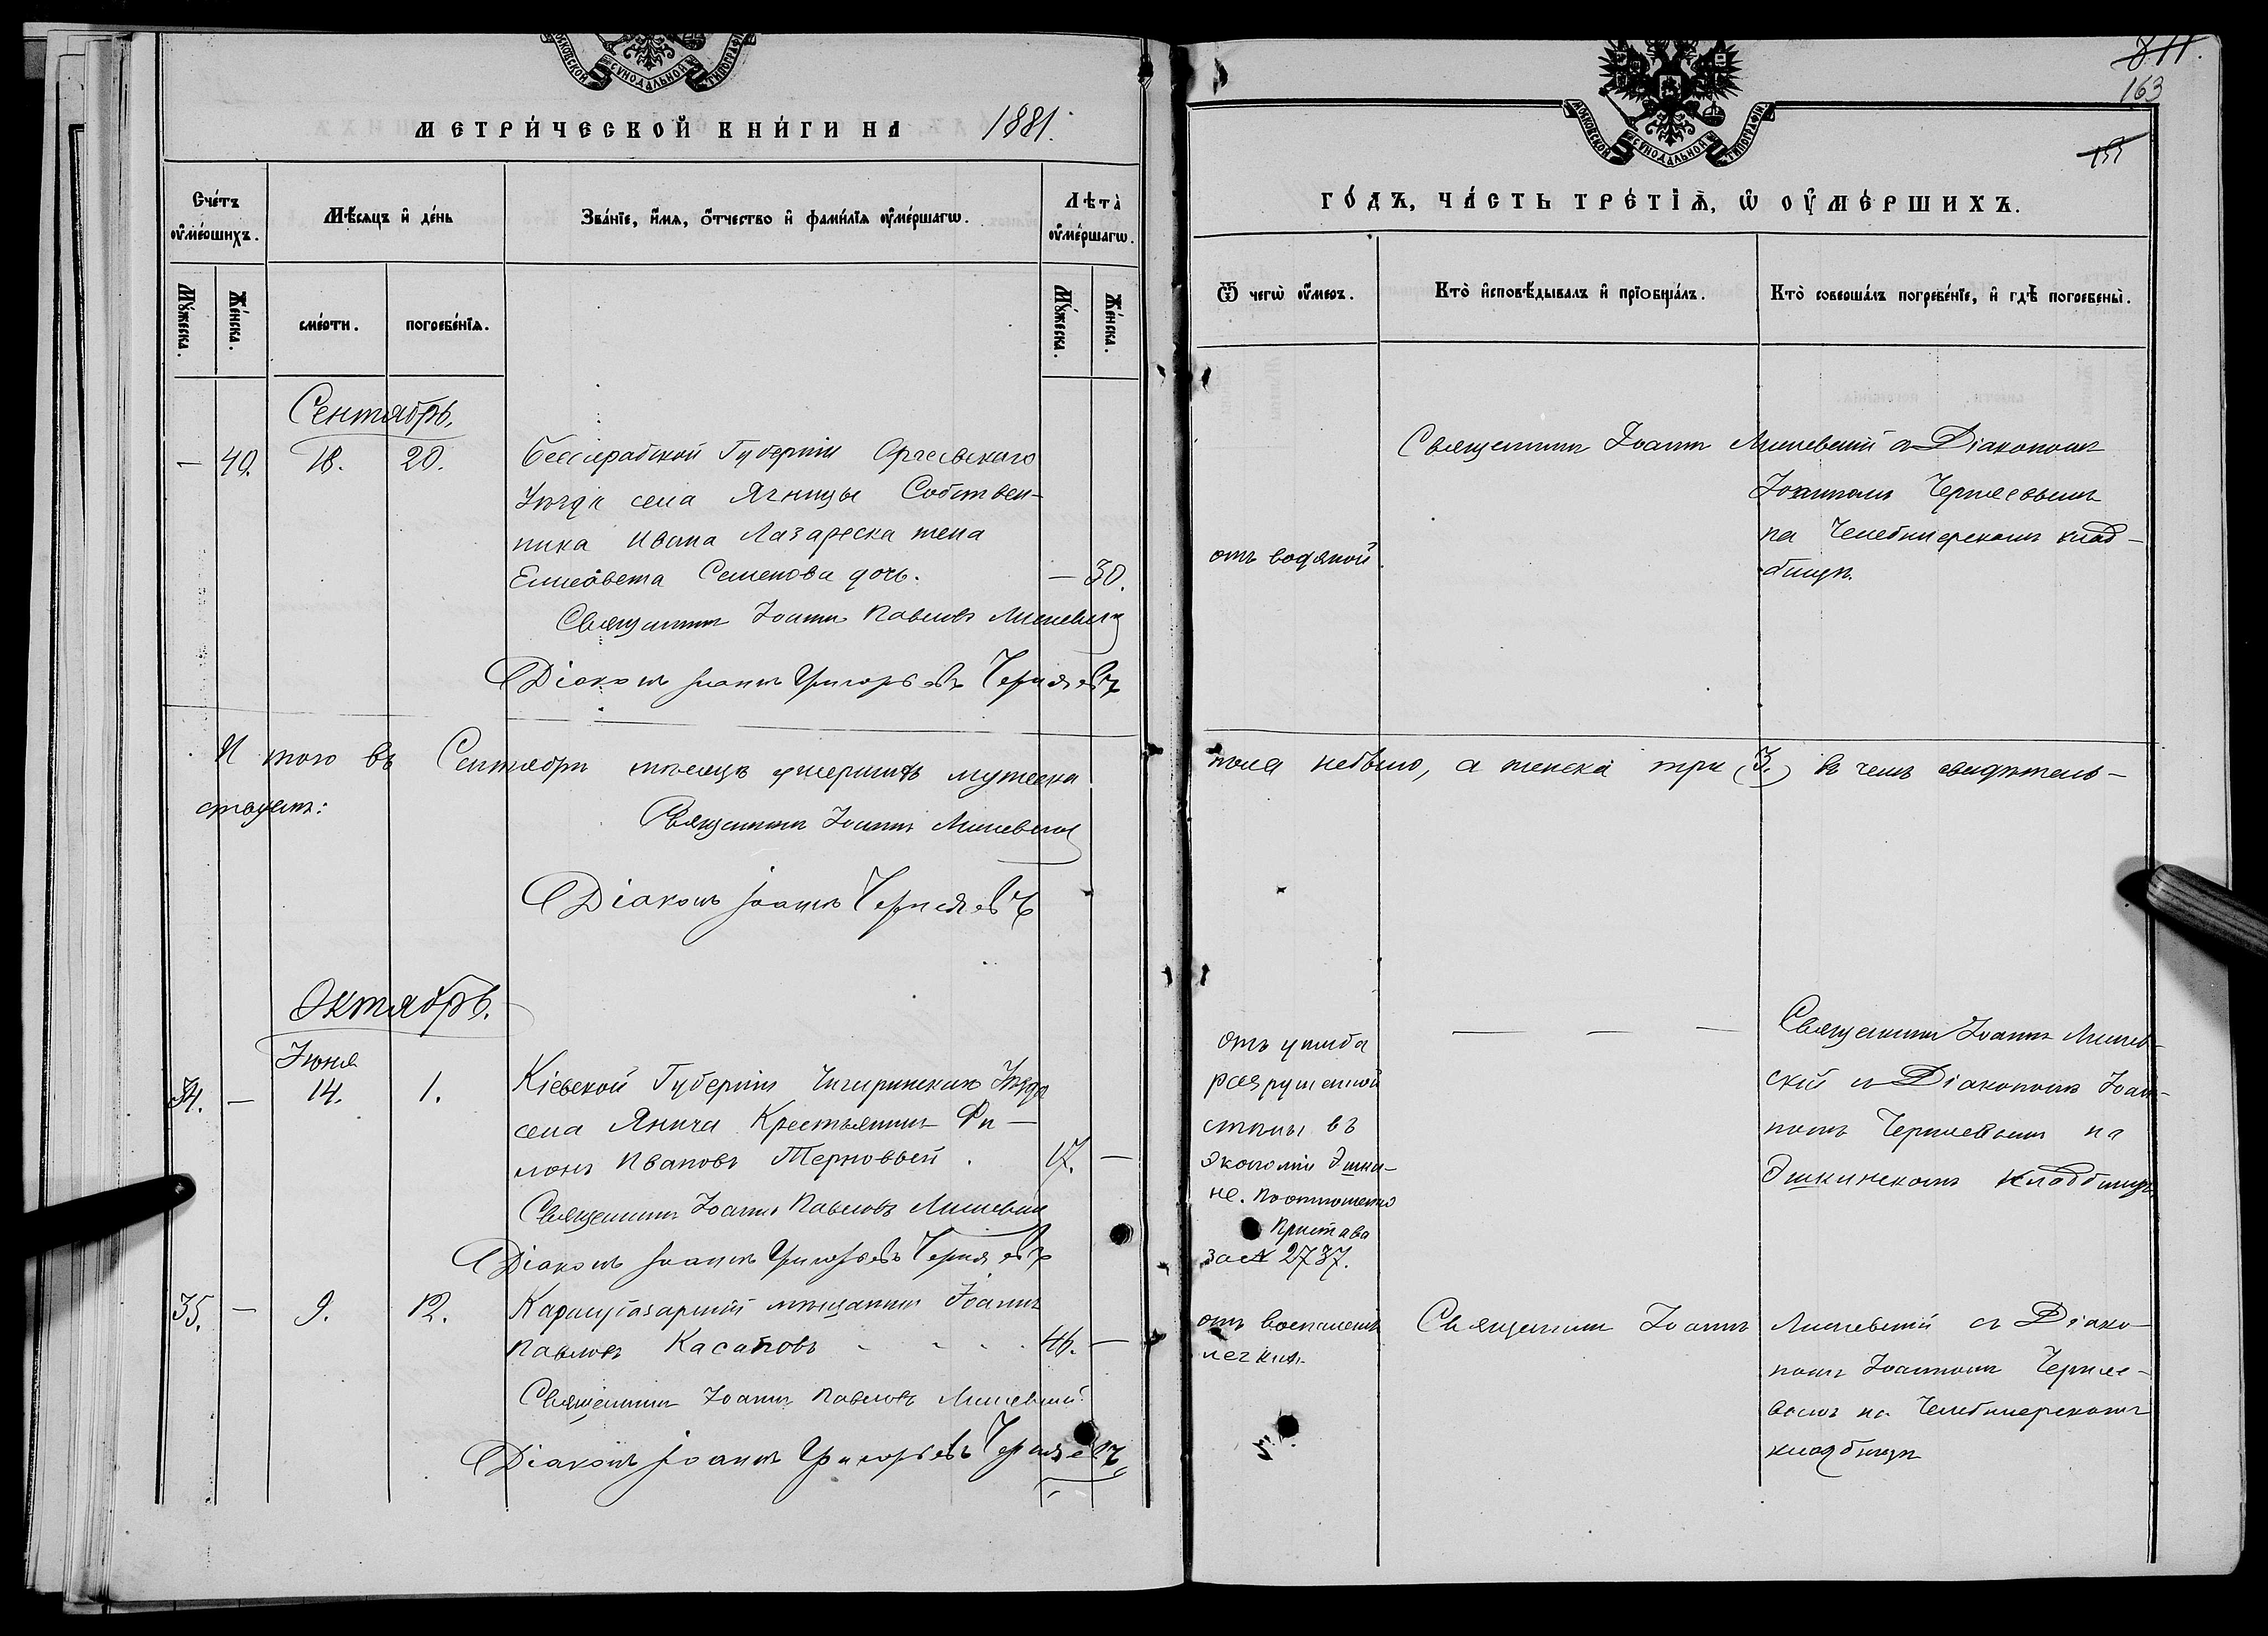 МОСКОВСКОЙ СѴНОДАЛЬНОЙ ТИПОГРАФІИ
МЕТРИ́ЧЕСКОЙ КНИ́ГИ НА 1881.
Сче́тъ оу҆ме́ршихъ.
Мѣ́сяцъ и҆ де́нь
Зва́нїе, и҆́мя, ѻ҆́тчество и҆ фами́лїя оу҆ме́ршагѡ.
Лѣта̀ оу҆ме́ршагѡ.
Мꙋ́жеска.
Же́нска.
сме́рти.
погребе́нїѧ.
Мꙋ́жеска.
Же́нска.
Сентябрь.
— 40. 18. 20. Бессарабской Губерніи Оргеевскаго
Уѣзда села Ягницы Собствен-
ника Ивана Лазареска жена
Елисавета Семенова дочь. — 30.
Священникъ Іоаннъ Павловъ Лишевскій
Діаконъ Іоаннъ Григорьевъ Черняевъ
И того въ Сентябрѣ мѣсяцѣ умершихъ мужеска
ствуетъ:
Священникъ Іоаннъ Лишевскій
Діаконъ Іоаннъ Черняевъ
Октябрь.
Іюня
34. — 14. 1. Кіевской Губерніи Чигиринскаго Уѣзда
села Янича Крестьянинъ Фи-
монъ Ивановъ Терновый. 17. —
Священникъ Іоаннъ Павловъ Лишевскій
Діаконъ Іоаннъ Григорьевъ Черняевъ
35. — 9. 12. Карасубазарскій мѣщанинъ Іоаннъ
Павловъ Касаповъ 46. —
Священникъ Іоаннъ Павловъ Лишевскій
Діаконъ Іоаннъ Григорьевъ Черняевъ
811.
163
155
МОСКОВСКОЙ СѴНОДАЛЬНОЙ ТИПОГРАФІИ
ГО́ДЪ, ЧА́СТЬ ТРЕ́ТЇѦ, Ѡ҆ ОУ҆МЕ́РШИХЪ.
Ѿ чегѡ̀ оу҆́меръ.
Кто̀ и҆сповѣ́дывалъ и҆ прїобща́лъ.
Кто̀ соверша́лъ погребе́нїе, и҆ гдѣ̀ погребены̀.
Священникъ Іоаннъ Лишевскій съ Діакономъ
Іоанномъ Черняевымъ
на Челебилерскомъ клад-
бищѣ.
отъ водяной
пола небыло, а женска три (3.) въ чемъ свидѣтель-
отъ ушиба
разрушенной
стѣны въ
экономіи Эшки-
не. по отношенію
Пристава
за № 2737.
— — —
Священникъ Іоаннъ Лишев-
скій съ Діакономъ Іоан-
номъ Черняевымъ на
Эшкинскомъ кладбищѣ
отъ воспаленія
легкихъ.
Священникъ Іоаннъ Лишевскій съ Діако-
номъ Іоанномъ Черняе-
вымъ на Челебилерскомъ
кладбищѣ